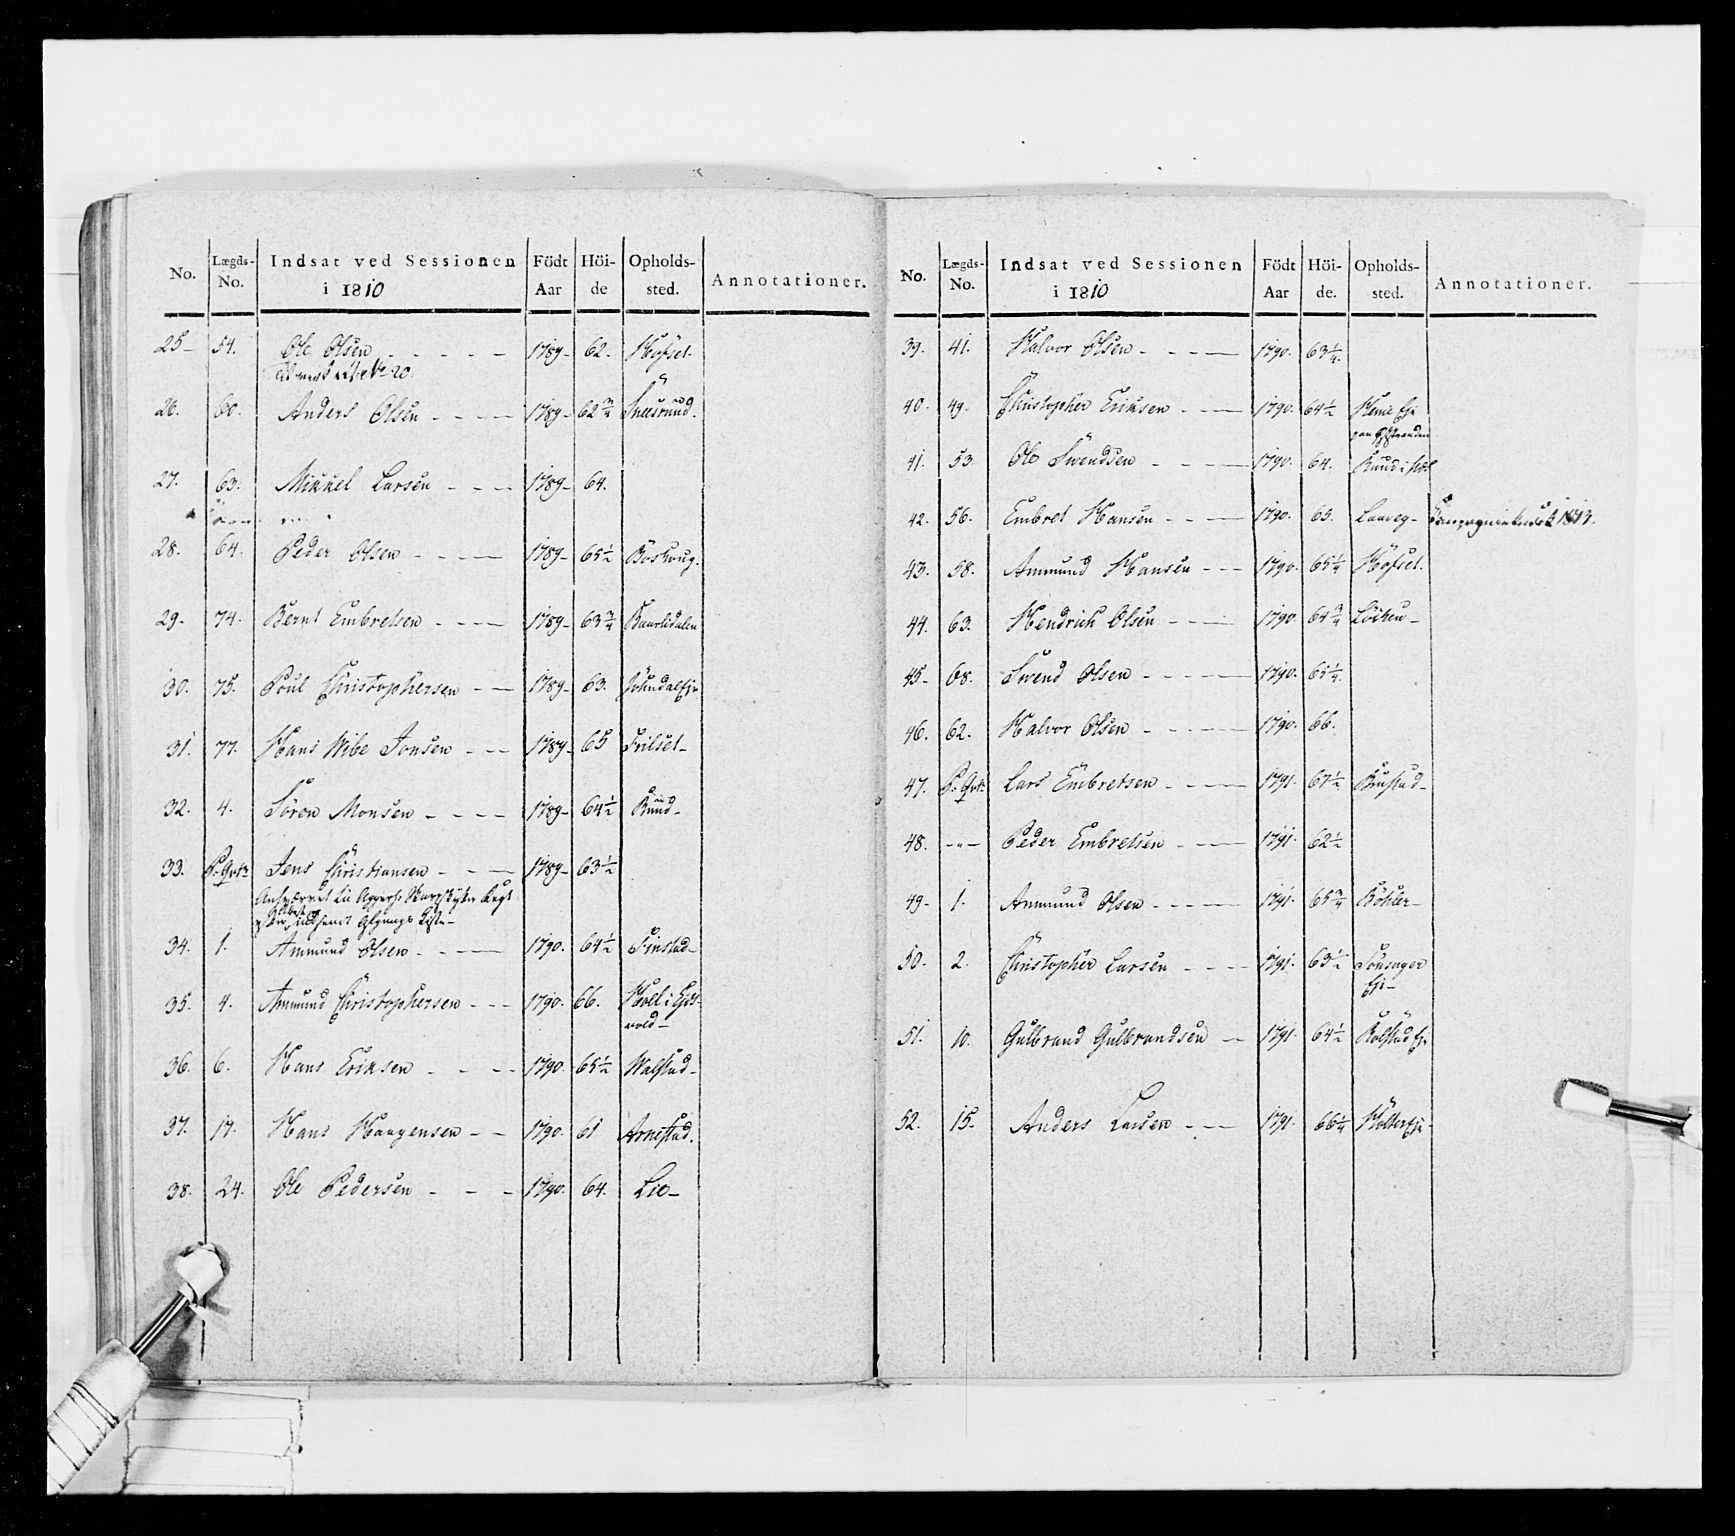 No. Lægds-No. Indsat ved Sessionen i 1810 Födt Aar Höi-de Opholds-sted. Annotationer.
25- 54. Ole Olsen - - - - - 1789- 62. Höfset-
No 20.
26. 60. Anders Olsen - - - - 1789- 62 3/4
27. 63. Mikkel Larsen - - - 1789- 64.
28. 64. Peder Olsen - - - - 1789- 65 1/2
29- 74. Bernt Embretsen - - - - 1789- 63 3/4
30. 75. Poul Christophersen - - 1789- 63.
31. 77. Hans Wibe Jonsen - - - 1789- 65 Frilset-
32. 4. Sören Monsen - - - - 1789- 64 1/2 Ruud-
33. P: Qvtr Jens Christiansen - - - 1789- 63 1/2
34. 1. Ammund Olsen - - - - 1790. 64 1/2 Finstad-
35. 4. Ammund Christophersen - - - 1790. 66. i Eids-
vold-
36. 6. Hans Eriksen - - - - 1790. 65 1/2 Walstad-
37. 17. Hans Haagensen - - 1790. 61 Arnestad.
38. 24. Ole Pedersen - - - 1790. 64. Lie-
No. Lægds-No. Indsat ved Sessionen i 1810 Födt Aar Höi-de. Opholds-sted. Annotationer.
39. 41. Halvor Olsen - - - - 1790. 63 1/4.
40. 49. Christopher Eriksen - - - 1790. 64 1/2
41. 53. Ole Svendsen - - - - 1790. 64. Ruud i
42. 56. Embret Hansen - - - - 1790. 63. 1813.
43. 58. Ammund Hansen - - - 1790. 65 1/4 Höfset.
44. 63. Hendrich Olsen - - - - 1790. 64 3/4 Löchen-
45- 68. Svend Olsen - - - - - 1790. 65 1/4.
46. 62. Halvor Olsen - - - - - 1790. 66.
47. P: Qvt: Lars Embretsen - - - - 1791. 67 1/2
48. -"- Peder Embretsen - - - 1791. 62 1/2
49- 1. Ammund Olsen - - - - 1791. 65 3/4 Böhler-
50- 2. Christopher Larsen - - - - 1791. 63 1/2
Eje-
51. 10. Gulbrand Gulbrandsen - 1791. 64 1/2
52. 15- Anders Larsen - - - 1791. 66 1/4